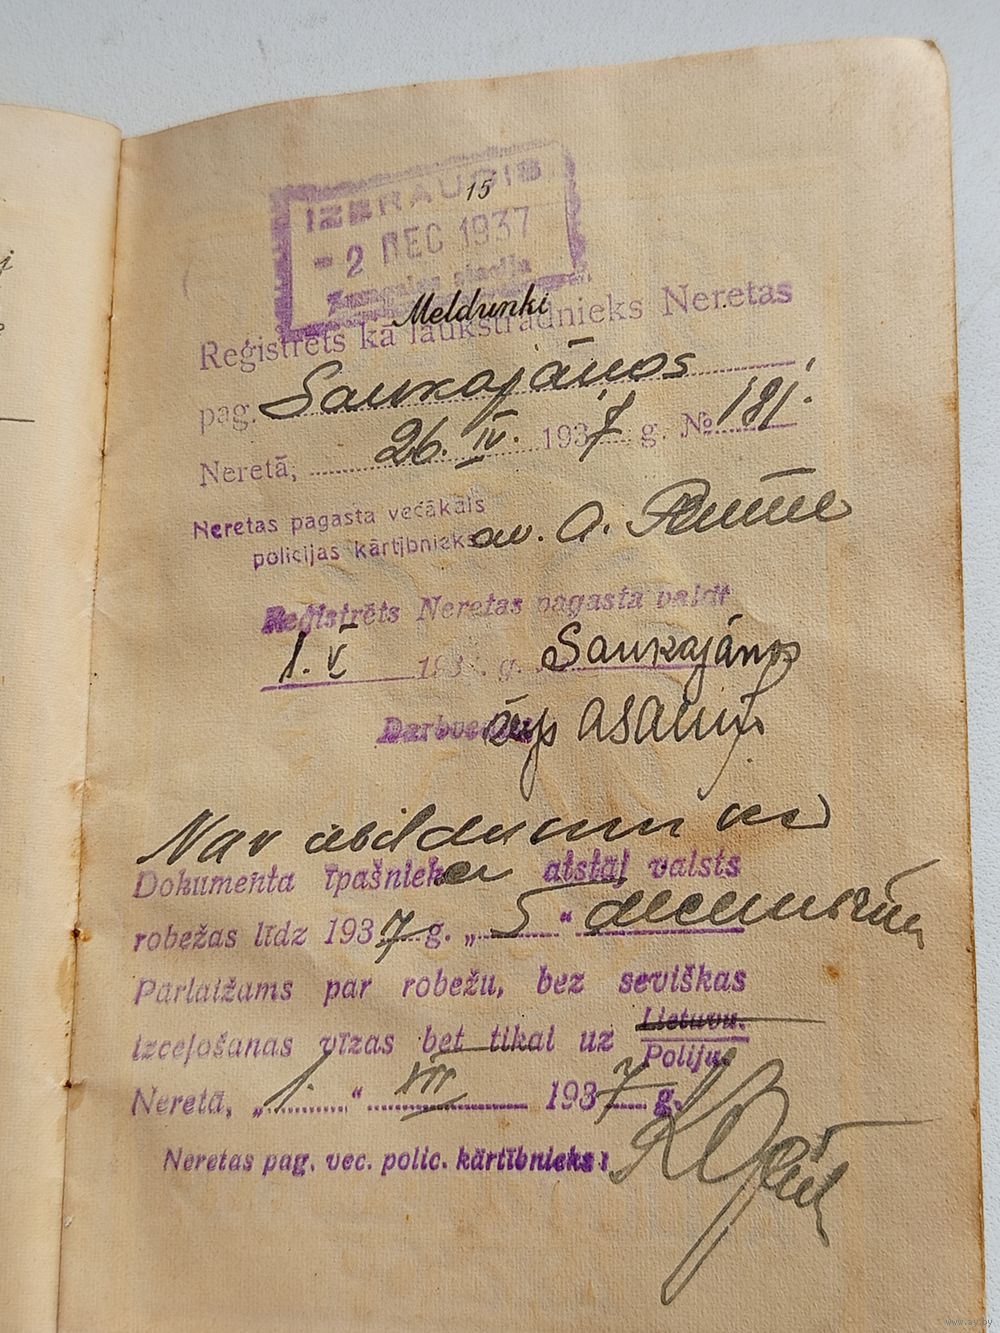 IZBRAUDIS
15
- 2 DEC 1937
Zemgales stacija
Meldunki
Reģistrēts kā laukstrādnieks Neretas
pag. Saukajános
Neretā, 26. IV. 1937 g. № 181.
Neretas pagasta vecākais
policijas kārtībnieks av. A.
Reģistrēts Neretas pagasta valdē
1. V 193 . g. Saukajános
Darbvedis
Nav
Dokumenta īpašniekam atstāj valsts
robežas līdz 1937 g. „ 5 “ decembrim
Pārlaižams par robežu, bez sevišķas
izceļošanas vīzas bet tikai uz Lietuvu.
Poliju.
Neretā, „ 1. “ XII 1937 g.
Neretas pag. vec. polic. kārtībnieks:
www.ay.by